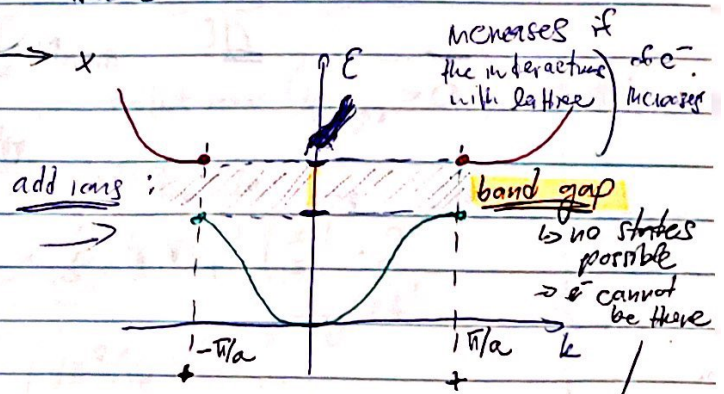 increases if
the interactions
with lattice
of e⁻
increases
x
ε
add ions :
band gap
↳ no states
possible
⇒ e⁻ cannot
be there
-π/a
π/a
k